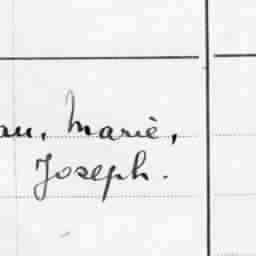 au, Marie,
Joseph.